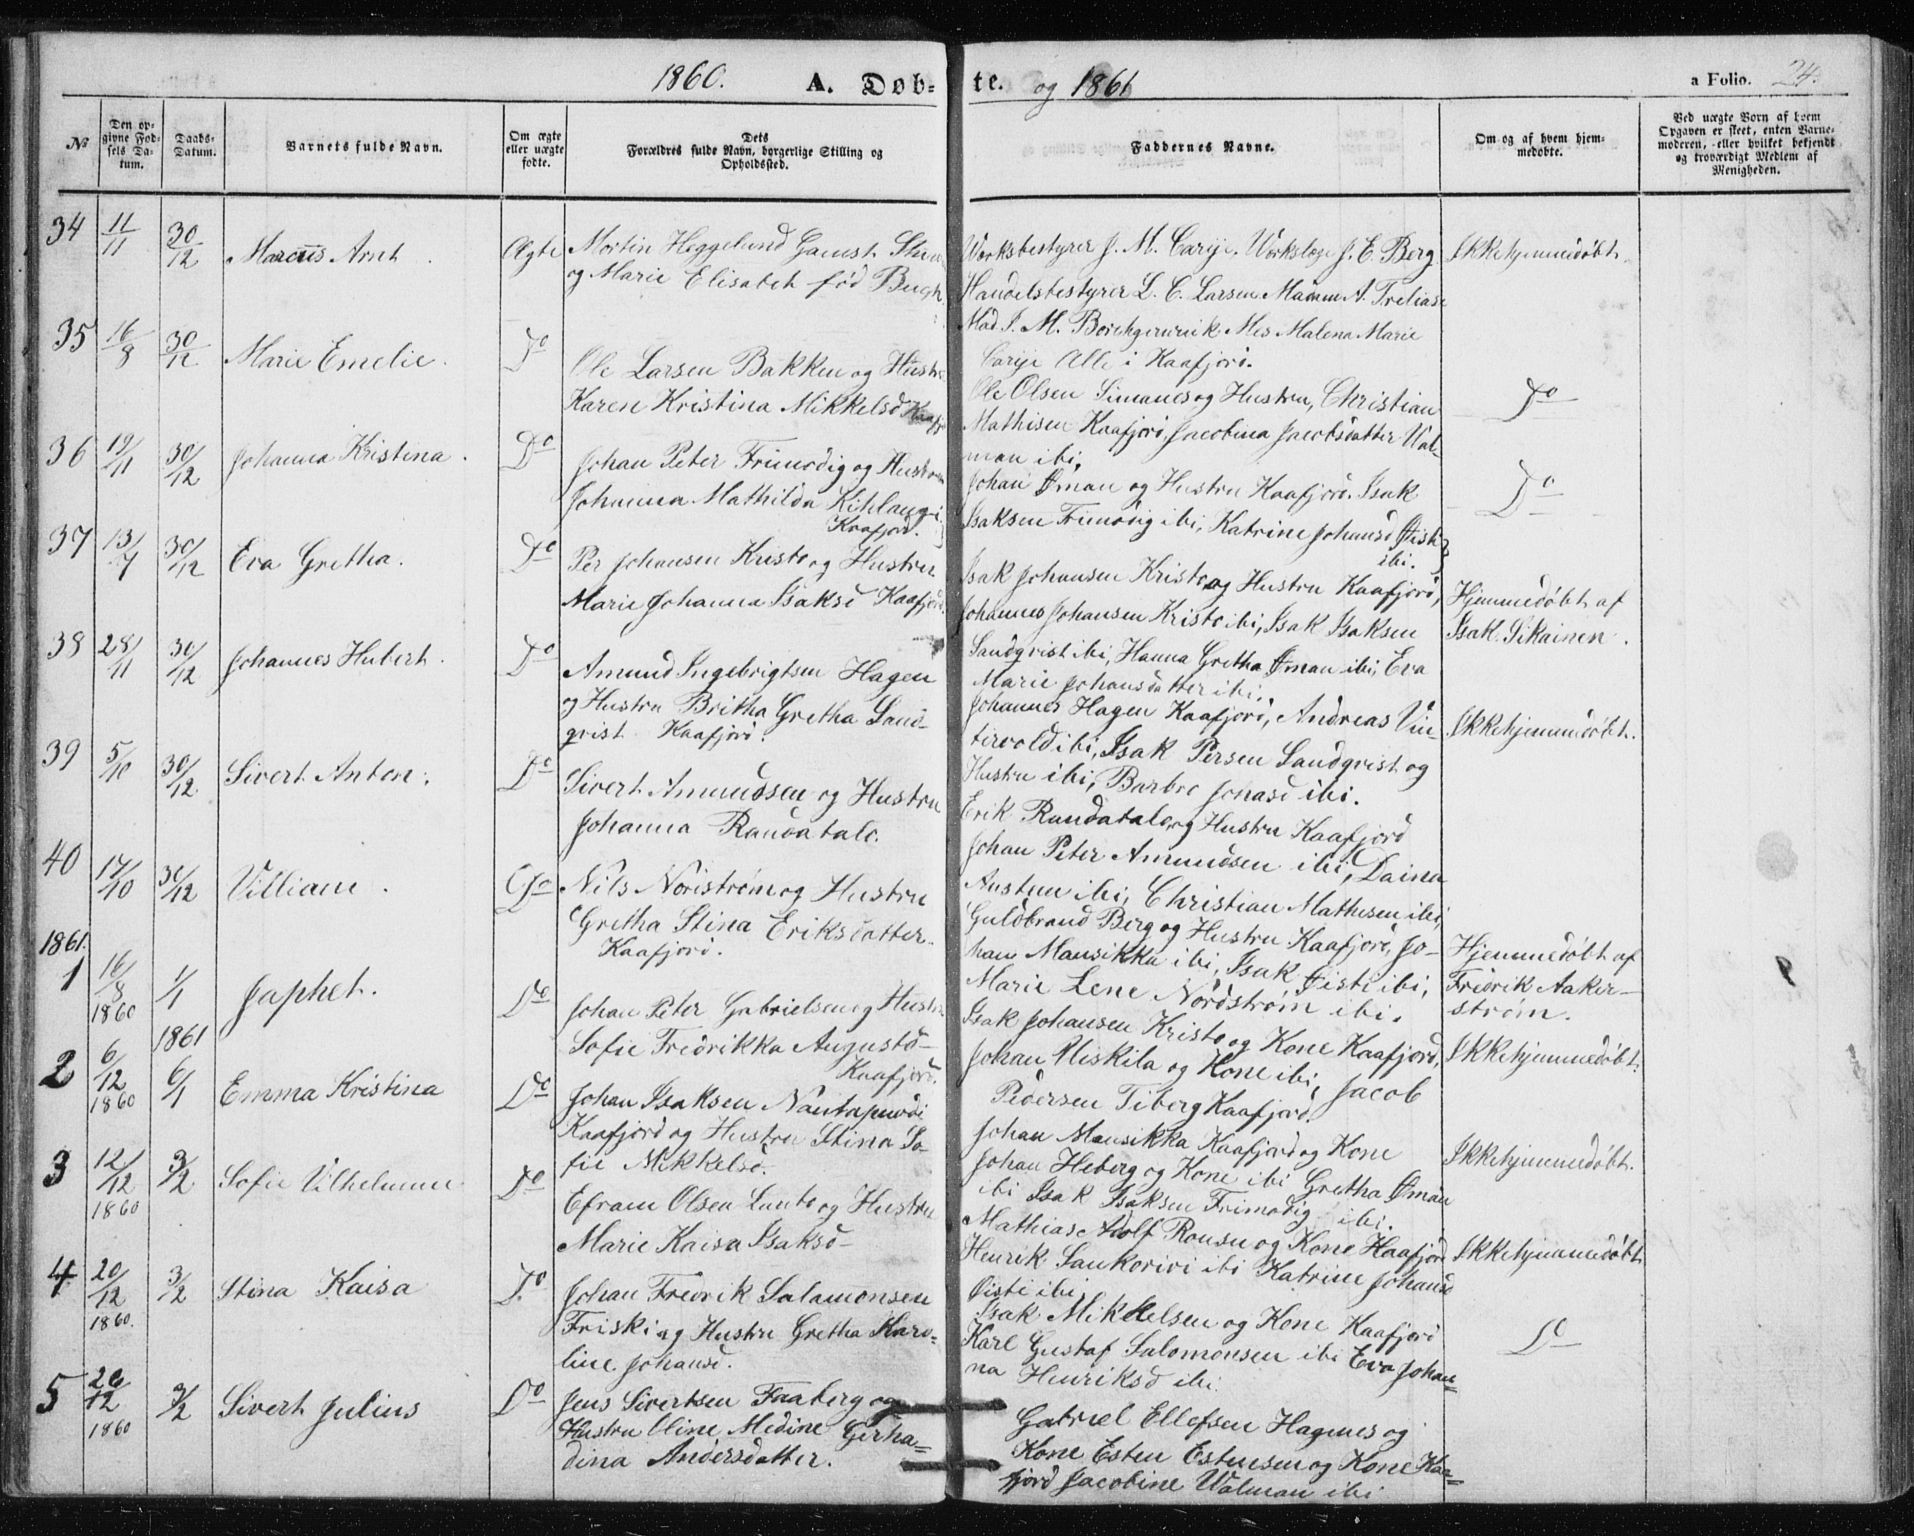 1860. A. Døb-
te. og 1861
a Folio. 24.
№
Den op-
givne Fød-
sels Da-
tum.
Daabs-
Datum.
Barnets fulde Navn.
Om ægte
eller uægte
fødte.
Dets
Forældres fulde Navn, borgerlige Stilling og
Opholdssted.
Faddernes Navne.
Om og af hvem hjem-
medøbte.
Ved uægte Born af hvem
Opgaven er skeet, enten Barne-
moderen, eller hvilket bekjendt
og troværdigt Medlem af
Menigheden.
34 11/11 30/12 Marcus Arnt. Ægte
Mortin Heggelund Gamst
og Marie Elisabet fød
Værksbestyrer J. M. Carije. Værkslæge J. E. Berg
Handelsbestyrer L. C. Larsen Mamm A.
Mad J. M. Mes Malena Marie
Carije Alle i Kaafjord.
Ikkehjemmedøbt.
35 16/8 30/12 Marie Emelie. Do
Ole Larsen Bakken og Hustru
Karen Kristina Mikkelsd Kaafj
Ole Olsen Simanes og Hustru, Christian
Mathisen Kaafjord, Jacobina Jacobsdatter Wal-
man ibi,
Do
36 19/11 30/12 Johanna Kristina. Do
Johan Peter Frimodig og Hustru
Johanna Mathilda Kihlangi
Kaafjord.
Johan Øman og Hustru Kaafjord. Isak
Isaksen Frimodig ibi, Katrine Johansd Øisti
ibi.
Do
37 13/7 30/12 Eva Gretha. Do
Per Johansen Kristo og Hustru
Marie Johanna Isaksd Kaafjord.
Isak Johansen Kristo og Hustru Kaafjord,
Johannes Johansen Kristo ibi, Isak Isaksen
Sandqrist ibi, Hanna Gretha Øman ibi, Eva
Marie Johansdatter ibi.
Hjemmedøbt af
Isak Sikainen.
38 28/11 30/12 Johannes Hubert. Do
Amund Ingebrigtsen Hagen
og Hustru Britha Gretha Sand-
qrist Kaafjord.
Johannes Hagen Kaafjord, Andreas Vin-
tervold ibi, Isak Persen Sandqrist og
Hustru ibi, Barbro Jonasd ibi.
Ikkehjemmedøbt.
39 5/10 30/12 Sivert Anton. Do
Sivert Amundsen og Hustru
Johanna Randatalo.
Erik Randatalo og Hustru Kaafjord
Johan Peter Amundsen ibi, Daina
Austun ibi, Christian Mathesen ibi,
40 17/10 30/12 Villiam. Do
Nils Nordstrøm og Hustru
Gretha Stina Eriksdatter.
Kaafjord.
Guldbrand Berg og Hustru Kaafjord, Jo-
han Mansikka ibi, Isak Øisti ibi,
Marie Lene Nordstrøm ibi.
Hjemmedøbt af
Fredrik Aaker-
strøm.
1861.
1 16/8 1860 1/1 1861 Japhet. Do
Johan Peter Gabrielsen og Hustru
Sofie Fredrikka Augustd-
Kaafjord.
Isak Johansen Kristo og Kone Kaafjord,
Johan Uliskila og Kone ibi, Jacob
Pedersen Tiberg Kaafjord.
Ikkehjemmedøbt.
2 6/12 1860 6/1 Emma Kristina Do
Johan Isaksen
Kaafjord og Hustru Stina So-
fie Mikkelsd.
Johan Mansikka Kaafjord og Kone
Johan Heberg og Kone ibi Gretha Øman
ibi Isak Isaksen Frimodig ibi.
Ikkehjemmedøbt.
3 12/12 1860 3/2 Sofie Vilhelmine Do
Efraim Olsen Lunto og Hustru
Marie Kaisa Isaksd-
Mathias Adolf Rousu og Kone Kaafjord
Henrik Sankovivi ibi Katrine Johansd
Øisti ibi
Ikkehjemmedøbt.
4 20/12 1860. 3/2 Stina Kaisa Do
Johan Fredrik Salamonsen
Friski og Hustru Gretha Karo-
line Johansd.
Isak Mikkelsen og Kone Kaafjord
Karl Gustaf Salomonsen ibi Eva Johan-
na Henriksd ibi.
Do
5 26/12 1860 3/2 Sivert Julius Do
Jens Sivertsen Faaberg og
Hustru Oline Medine Gerha-
dina Andersdatter.
Gabriel Ellefsen Hagenes og
Kone Esten Estensen og Kone Kaa-
fjord Jacobine Walman ibi